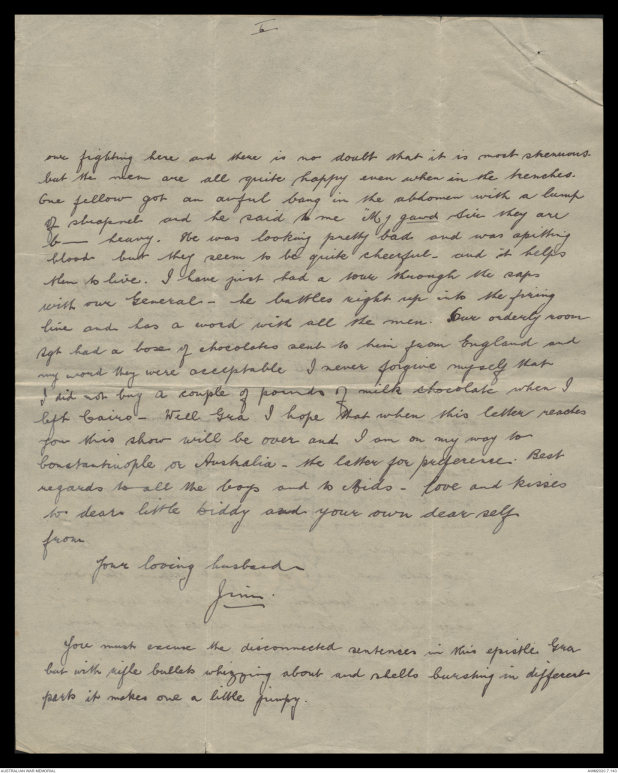 6
our fighting here and there is no doubt that it is most strenuous
but the men are all quite happy even when in the trenches.
One fellow got an awful bang in the abdomen with a lump
of shrapnel and he said to me "My gawd Sir they are
b— heavy. He was looking pretty bad and was spitting
blood but they seem to be quite cheerful - and it helps
them to live. I have just had a tour through the saps
with our General - he battles right up into the firing
line and has a word with all the men. Our orderly room
Sgt had a box of chocolates sent to him from England and
my word they were acceptable I never forgive myself that
I did not buy a couple of pounds of milk chocolate when I
left Cairo - Well Gra I hope that when this letter reaches
you this show will be over and I am on my way to
Constantinople or Australia - the latter for preference. Best
regards to all the boys and to - Love and kisses
to dear little Biddy and your own dear self
from
Your loving husband
Jim.
You must excuse the disconnected sentences in this epistle Gra
but with rifle bullets whizzing about and shells bursting in different
parts it makes one a little jumpy.
AUSTRALIAN WAR MEMORIAL